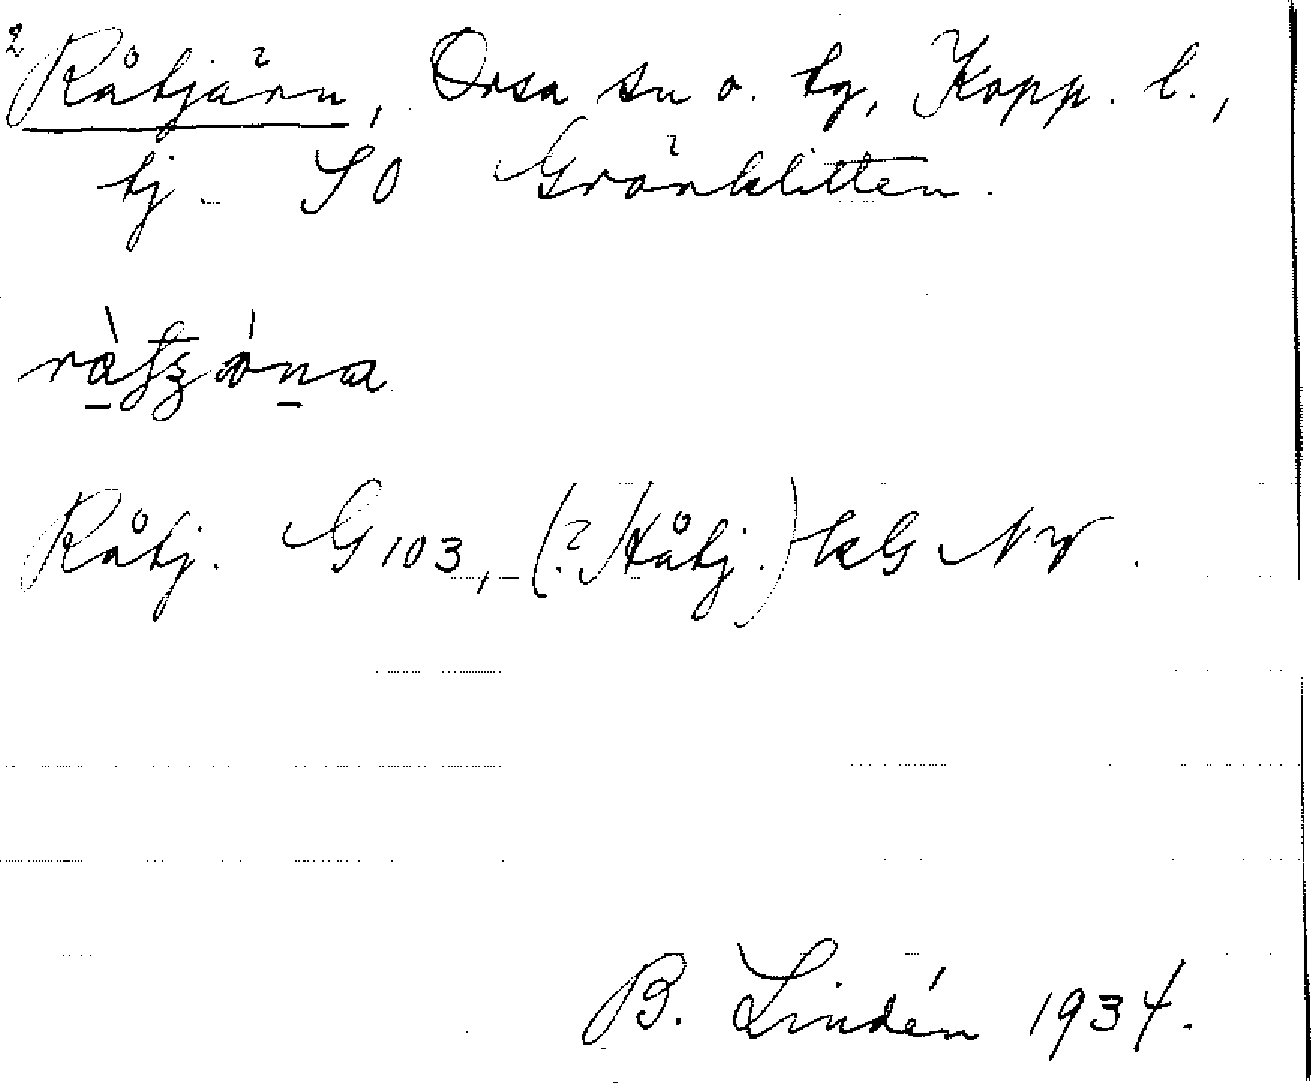 2 Råtjärn, Orsa sn o. tg, Kopp. l.,
tj. SO Grönklitten.
Råtj. G 103, (? Håtj.) kG NV.
B. Lindén 1934.